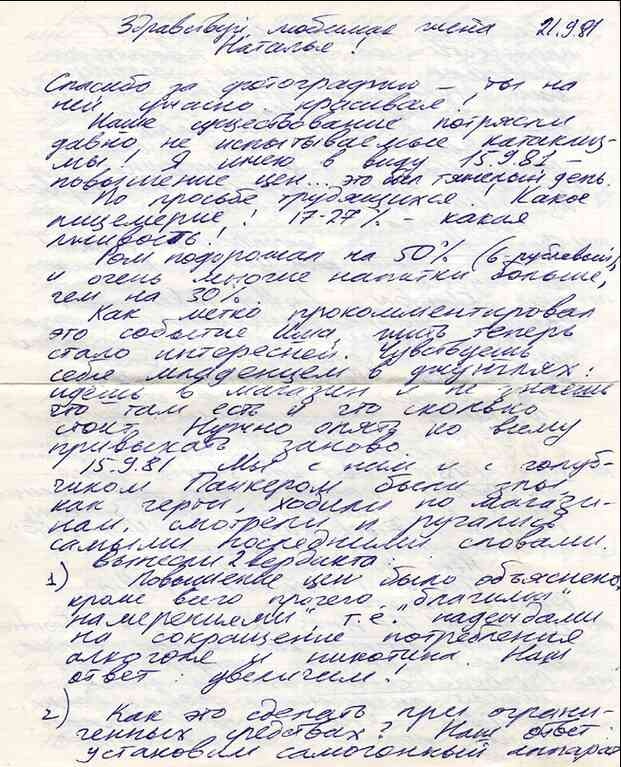 Здравствуй, любимая чета 21.9.81
Наталья!
Спасибо за фотографию – ты на
ней ужасно красивая!
Наше существование потрясли
давно не испытываемые катаклиз-
мы! Я имею в виду 15.9.81 –
повышение цен... это был тяжелый день.
По просьбе трудящихся! Какое
лицемерие! 17-27% – какая
лживость!
Ром подорожал на 50% (6-рублевый),
и очень многие напитки больше,
чем на 30%.
Как метко прокомментировал
это событие Има, жить теперь
стало интересней. Чувствуешь
себя младенцем в джунглях:
идешь в магазин и не знаешь
что там есть и что сколько
стоит. Нужно опять ко всему
привыхать заново.
15.9.81 Мы с ним и с голуб-
чиком Панкером были злы
как черти, ходили по магази-
нам, смотрели и ругались
самыми последними словами.
Вынесли 2 вердикта:
1) Повышение цен было объяснено,
кроме всего прочего, "благими
намерениями", т.е. надеждами
на сокращение потребления
алкоголя и никотина. Наш
ответ: увеличим!
2) Как это сделать при ограни-
ченных средствах? Наш ответ:
установим самогонный аппарат